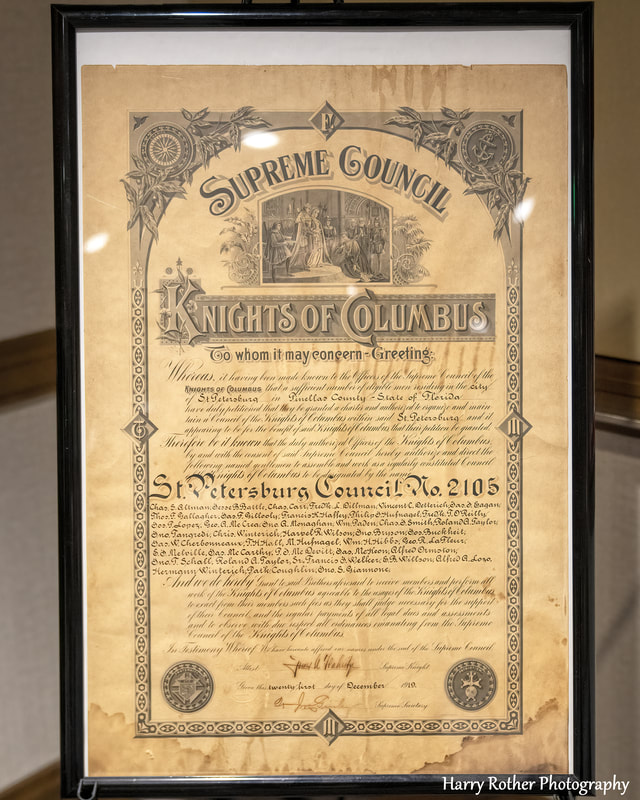 SUPREME COUNCIL
KNIGHTS OF COLUMBUS
To whom it may concern - Greeting:
Whereas, it having been made known to the Officers of the Supreme Council of the
KNIGHTS OF COLUMBUS that a sufficient number of eligible men residing in the city
of St Petersburg in Pinellas County - State of Florida
have duly petitioned that they be granted a charter and authorized to organize and main-
tain a Council of the Knights of Columbus within said St. Petersburg and it
appearing to be for the benefit of said Knights of Columbus that their petition be granted.
Therefore be it known that the duly authorized Officers of the Knights of Columbus
by and with the consent of said Supreme Council hereby authorize and direct the
following named gentlemen to assemble and work as a regularly constituted Council
of the Knights of Columbus to be designated by the name
St. Petersburg Council No. 2105
Chas. S. Altman, Jesse B. Battle, Chas. Carr, Fredk. L. Dittman, Vincent C. Detterich, Jas. D. Eagan,
Thos. F. Gallagher, Jas. F. Gallooly, Francis K. Haffey, Philip J. Hufnagel, Fredk. T. O'Reilly
Jos. P. Lopez, Geo. A. Mc Crea, Jno. A. Monaghan, Wm. Paden, Chas. E. Smith, Roland A. Taylor,
Jno. Tangredi, Chris. Winterich, Harvel R. Wilson, Jno. Bryson, Jos. Buckheit,
Jas. W. Cherbonneaux, J. H. Hall, M. Hufnagel, Wm. H. Hibbs, Geo. R. LaFleur,
E. D. Melville, Jas. Mc Carthy, P. D. Mc Devitt, Jas. McKeon, Alfred Ormston,
Jno. T. Schall, Roland A. Taylor, Sr. Francis J. Welker, E. B. Willson, Alfred A. Lora,
Hermann Winterich, Park Coughlin, Jno. S. Giannone,
And we do hereby Grant to said Brothers aforesaid to receive members and perform all
work of the Knights of Columbus agreeable to the usages of the Knights of Columbus
to exact from their members such fees as they shall judge necessary for the support
of their Council and the regular payments of all legal dues and assessments
and to observe with due respect all ordinances emanating from the Supreme
Council of the Knights of Columbus
In Testimony Whereof, We have hereunto affixed our names under the seal of the Supreme Council
Attest Supreme Knight
Given this twenty first day of December 1919.
Supreme Secretary
Harry Rother Photography